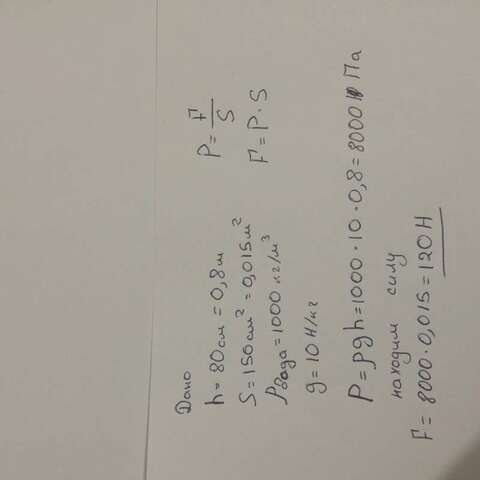 Дано
h = 80см = 0,8м
S = 150см² = 0,015м²
ρвода = 1000 кг/м³
g = 10 Н/кг
P = F/S
F = P · S
P = ρgh = 1000 · 10 · 0,8 = 8000 Па
находим силу
F = 8000 · 0,015 = 120 Н